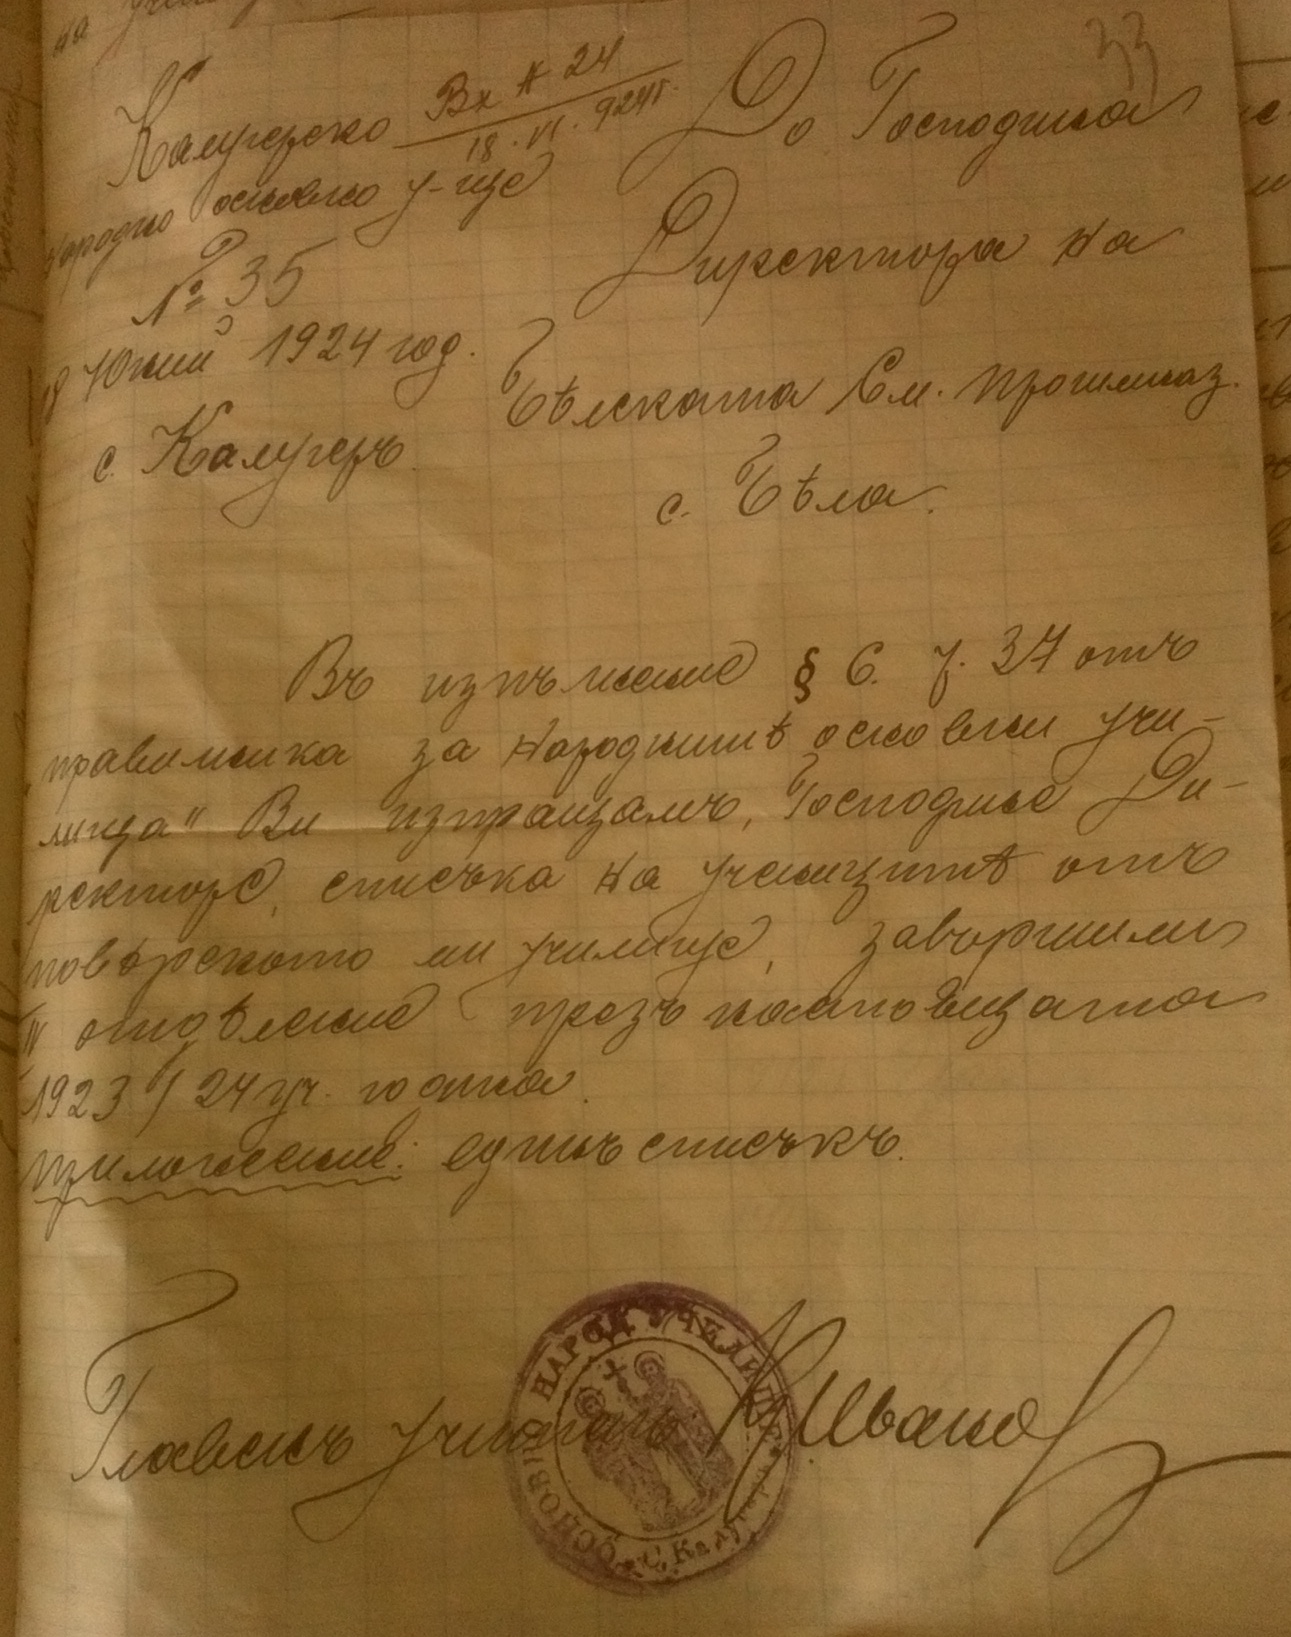 на
33
Калугерско
Вх № 24
18. VI. 924 г.
народно основно у-ще
№ 35
18 Юний 1924 год.
с. Калугеръ
До Господина
Директора на
Бѣлската См. Прогимназ.
с. Бѣла.
Въ изпълнение § 6. у. 37 отъ
правилника за народнитѣ основни учи-
лища" Ви изпращамъ, Господине Ди-
ректоре, списъка на ученицитѣ отъ
повѣреното ми училище, завършили
IV отдѣление презъ настоящата
1923 / 24 уч. година.
приложение: единъ списъкъ.
Главенъ учитель Иванов
ОСНОВНО НАРОД. УЧЕЛИЩЕ
С. Калугеръ